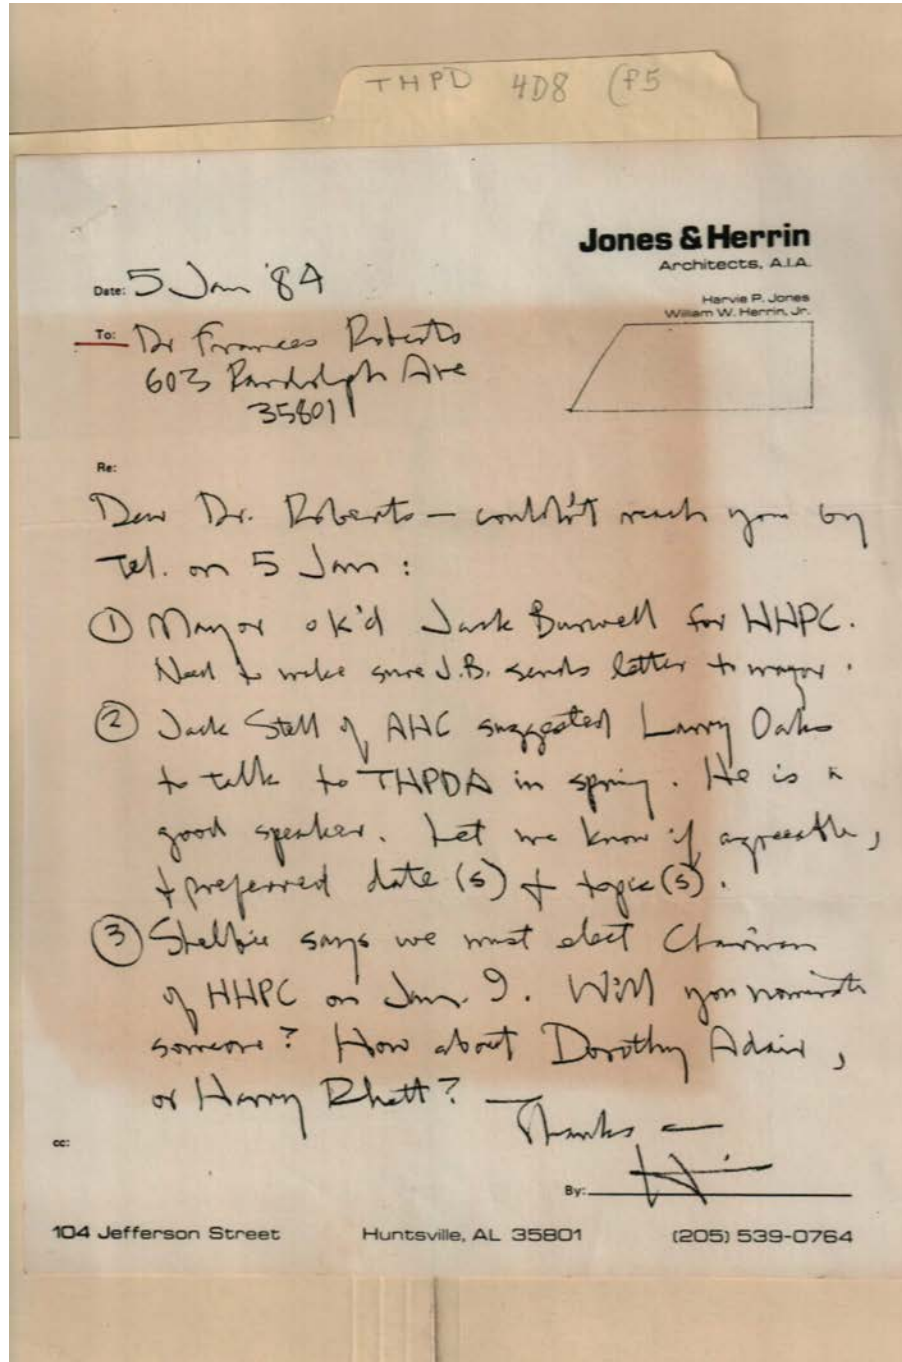 THPD 4D8 (F5
Jones & Herrin
Architects, A.I.A.
Harvie P. Jones
William W. Herrin, Jr.
Date: 5 Jan '84
To: Dr Frances Roberts
603 Randolph Ave
35801
Re:
Dear Dr. Roberts — couldn't reach you by
Tel. on 5 Jan :
① Mayor ok'd Jack Burwell for HHPC.
Need to make sure J.B. sends letter to mayor.
② Jack Stell of AHC suggested Larry Oaks
to talk to THPDA in spring. He is a
good speaker. Let me know if agreeable,
+ preferred date(s) + topic(s).
③ Shelbie says we must elect Chairman
of HHPC on Jan. 9. Will you nominate
someone? How about Dorothy Adair,
or Harry Rhett? — Thanks —
cc:
By:
104 Jefferson Street Huntsville, AL 35801 (205) 539-0764